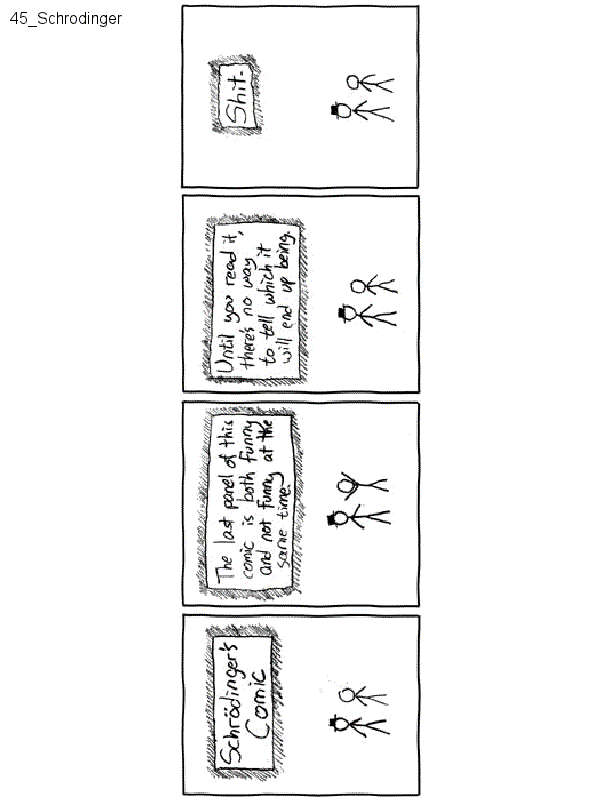 45_Schrodinger
Schrödinger's
Comic
The last panel of this
comic is both funny
and not funny at the
same time.
Until you read it,
there's no way
to tell which it
will end up being.
Shit.